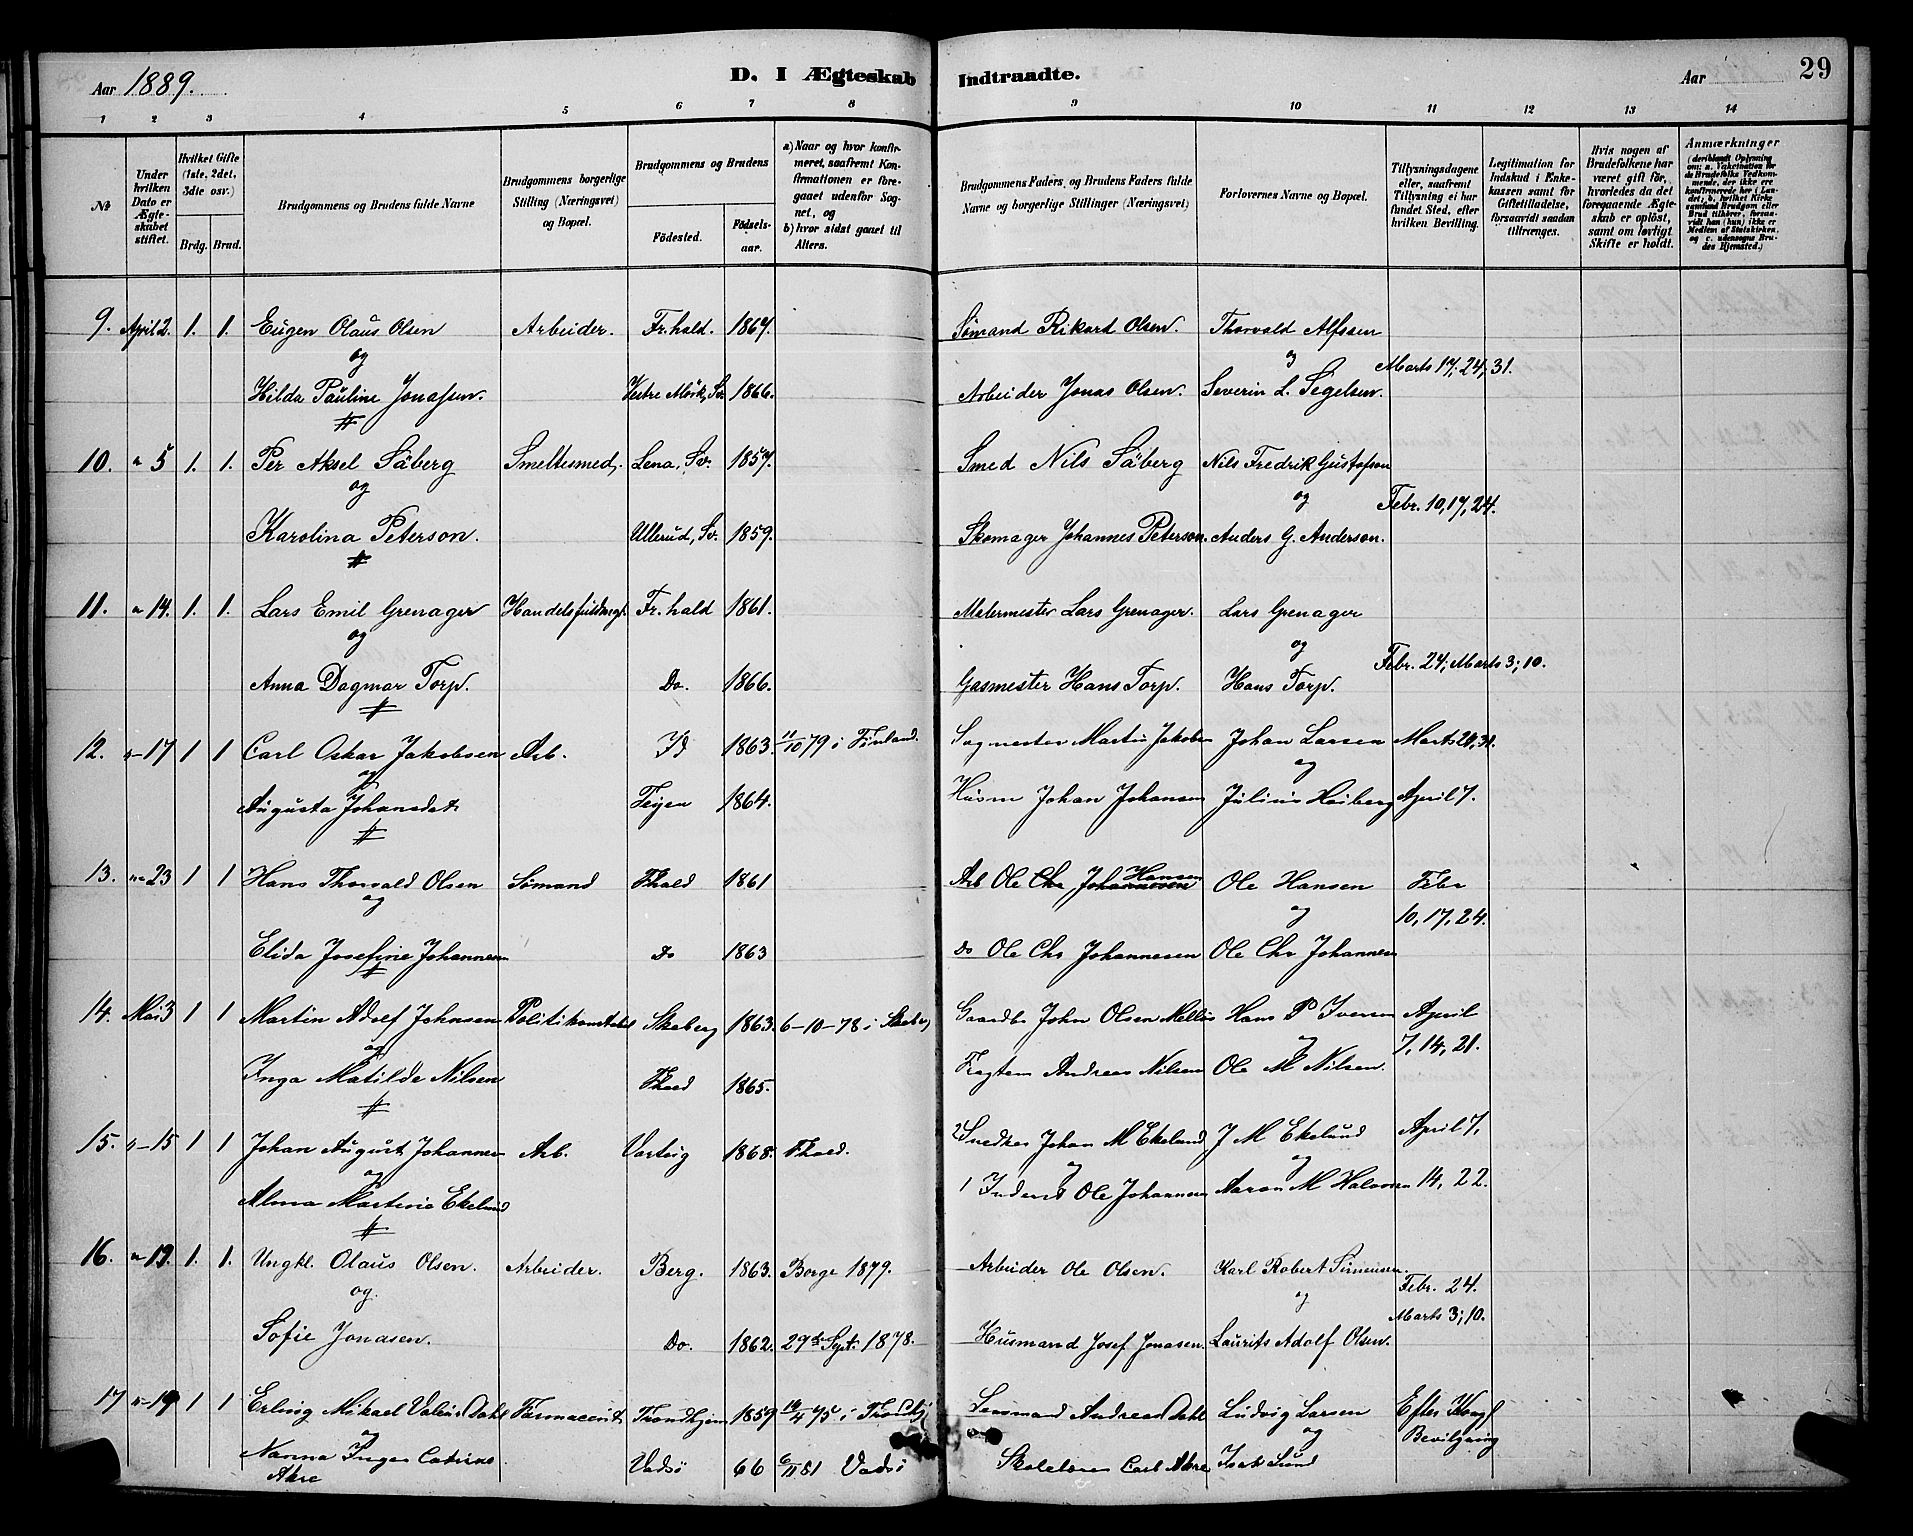 Aar 1889.
D. I Ægteskab Indtraadte.
Aar
29
1 2 3 4 5 6 7 8 9 10 11 12 13 14
№
Under hvilken Dato er Ægteskabet stiftet.
Hvilket Gifte (1ste, 2det, 3die osv.)
Brdg. Brud.
Brudgommens og Brudens fulde Navne
Brudgommens borgerlige Stilling (Næringsvei) og Bopæl.
Brudgommens og Brudens
Fødested.
Fødselsaar.
a) Naar og hvor konfirmeret, saafremt Konfirmationen er foregaaet udenfor Sognet, og
b) hvor sidst gaaet til Alters.
Brudgommens Faders, og Brudens Faders fulde Navne og borgerlige Stillinger (Næringsvei)
Forlovernes Navne og Bopæl.
Tillysningsdagene eller, saafremt Tillysning ei har fundet Sted, efter hvilken Bevilling.
Legitimation for Indskud i Enkekassen samt for Giftetilladelse, forsaavidt saadan tiltrænges.
Hvis nogen af Brudefolkene har været gift før, hvorledes da det foregaaende Ægteskab er opløst, samt om lovligt Skifte er holdt.
Anmærkninger
(deriblandt Oplysning om: a. Vakcination for de Brudefolks Vedkommende, der ikke ere konfirmerede her i Landet; b. hvilket Kirkesamfund Brudgom eller Brud tilhører, forsaavidt han (hun) ikke er Medlem af Statskirken, og c. udensogns Brudes Hjemsted.)
9. April 2. 1. 1. Eugen Olaus Olsen Arbeider. Fr.hald. 1864. Sømand Rikard Olsen. Thorvald Alfssen
og og Marts 17, 24, 31.
Hilda Pauline Jonassen. Vestre Mörk, Sv. 1866. Arbeider Jonas Olsen. Severin L. Segelsen.
10. " 5 1. 1. Per Aksel Säberg Smeltesmed. Lena, Sv. 1857. Smed Nils Säberg Nils Fredrik Gustafson
og og Febr. 10, 17, 24.
Karolina Peterson. Ullerud, Sv. 1859. Skomager Johannes Peterson. Anders G. Anderson.
11. " 14. 1. 1. Lars Emil Grenager Fr.hald 1861. Malermester Lars Grenager. Lars Grenager
og og Febr. 24; Marts 3; 10.
Anna Dagmar Torp. Do. 1866. Gasmester Hans Torp. Hans Torp.
12. "-17 1 1 Carl Oskar Jakobsen Arb. 1863. 11/10 79 i Finland. Martin Jakobsen Johan Larsen Marts 24, 31.
og og
Augusta Johansdat. 1864. Husm Johan Johansen Julius Heiberg April 7.
13. "-23 1 1 Hans Thorvald Olsen Sömand Fhald 1861 Arb Ole Chr Johannesen Hansen Ole Hansen Febr
og og 10, 17, 24.
Elida Josefine Johannesen Do 1863 Do Ole Chr Johannesen Ole Chr Johannesen
14. Mai 3 1 1 Martin Adolf Johnsen Politikonstabel Skeberg 1863. 6-10-78 i Skeberg Gaardbr John Olsen Hans P Iversen April
og og 7, 14, 21.
Inga Matilde Nilsen Fhald 1865. Andreas Nilsen Ole M Nilsen.
15. "-15 1 1 Johan August Johannesen Arb. Varteig 1868. Fhald. 2 Snedker Johan M Ekelund J M Ekelund April 7,
og og og
Alma Martine Ekelund 1 Inderst Ole Johannesen Aaron M Halvorsen 14, 22.
16. " 19. 1. 1. Ungkl. Olaus Olsen. Arbeider. Berg. 1863. Borge 1879. Arbeider Ole Olsen. Karl Robert Simensen. Febr. 24.
og. og Marts 3; 10.
Sofie Jonasen. Do. 1862. 29de Sept. 1878. Husmand Josef Jonasen. Laurits Adolf Olsen.
17 "-19 1 1 Erling Mikael Valeur Dahl Farmaceut Trondhjem 1859 /4 75 i Trondhj Lensmand Andreas Dahl Ludvig Larsen Efter Kongl
og og Bevilgning
Nanna Inger Catrine Akre Vadsö 66 6/11 81 Vadsö Skolelærer Carl Akre Isak Lund